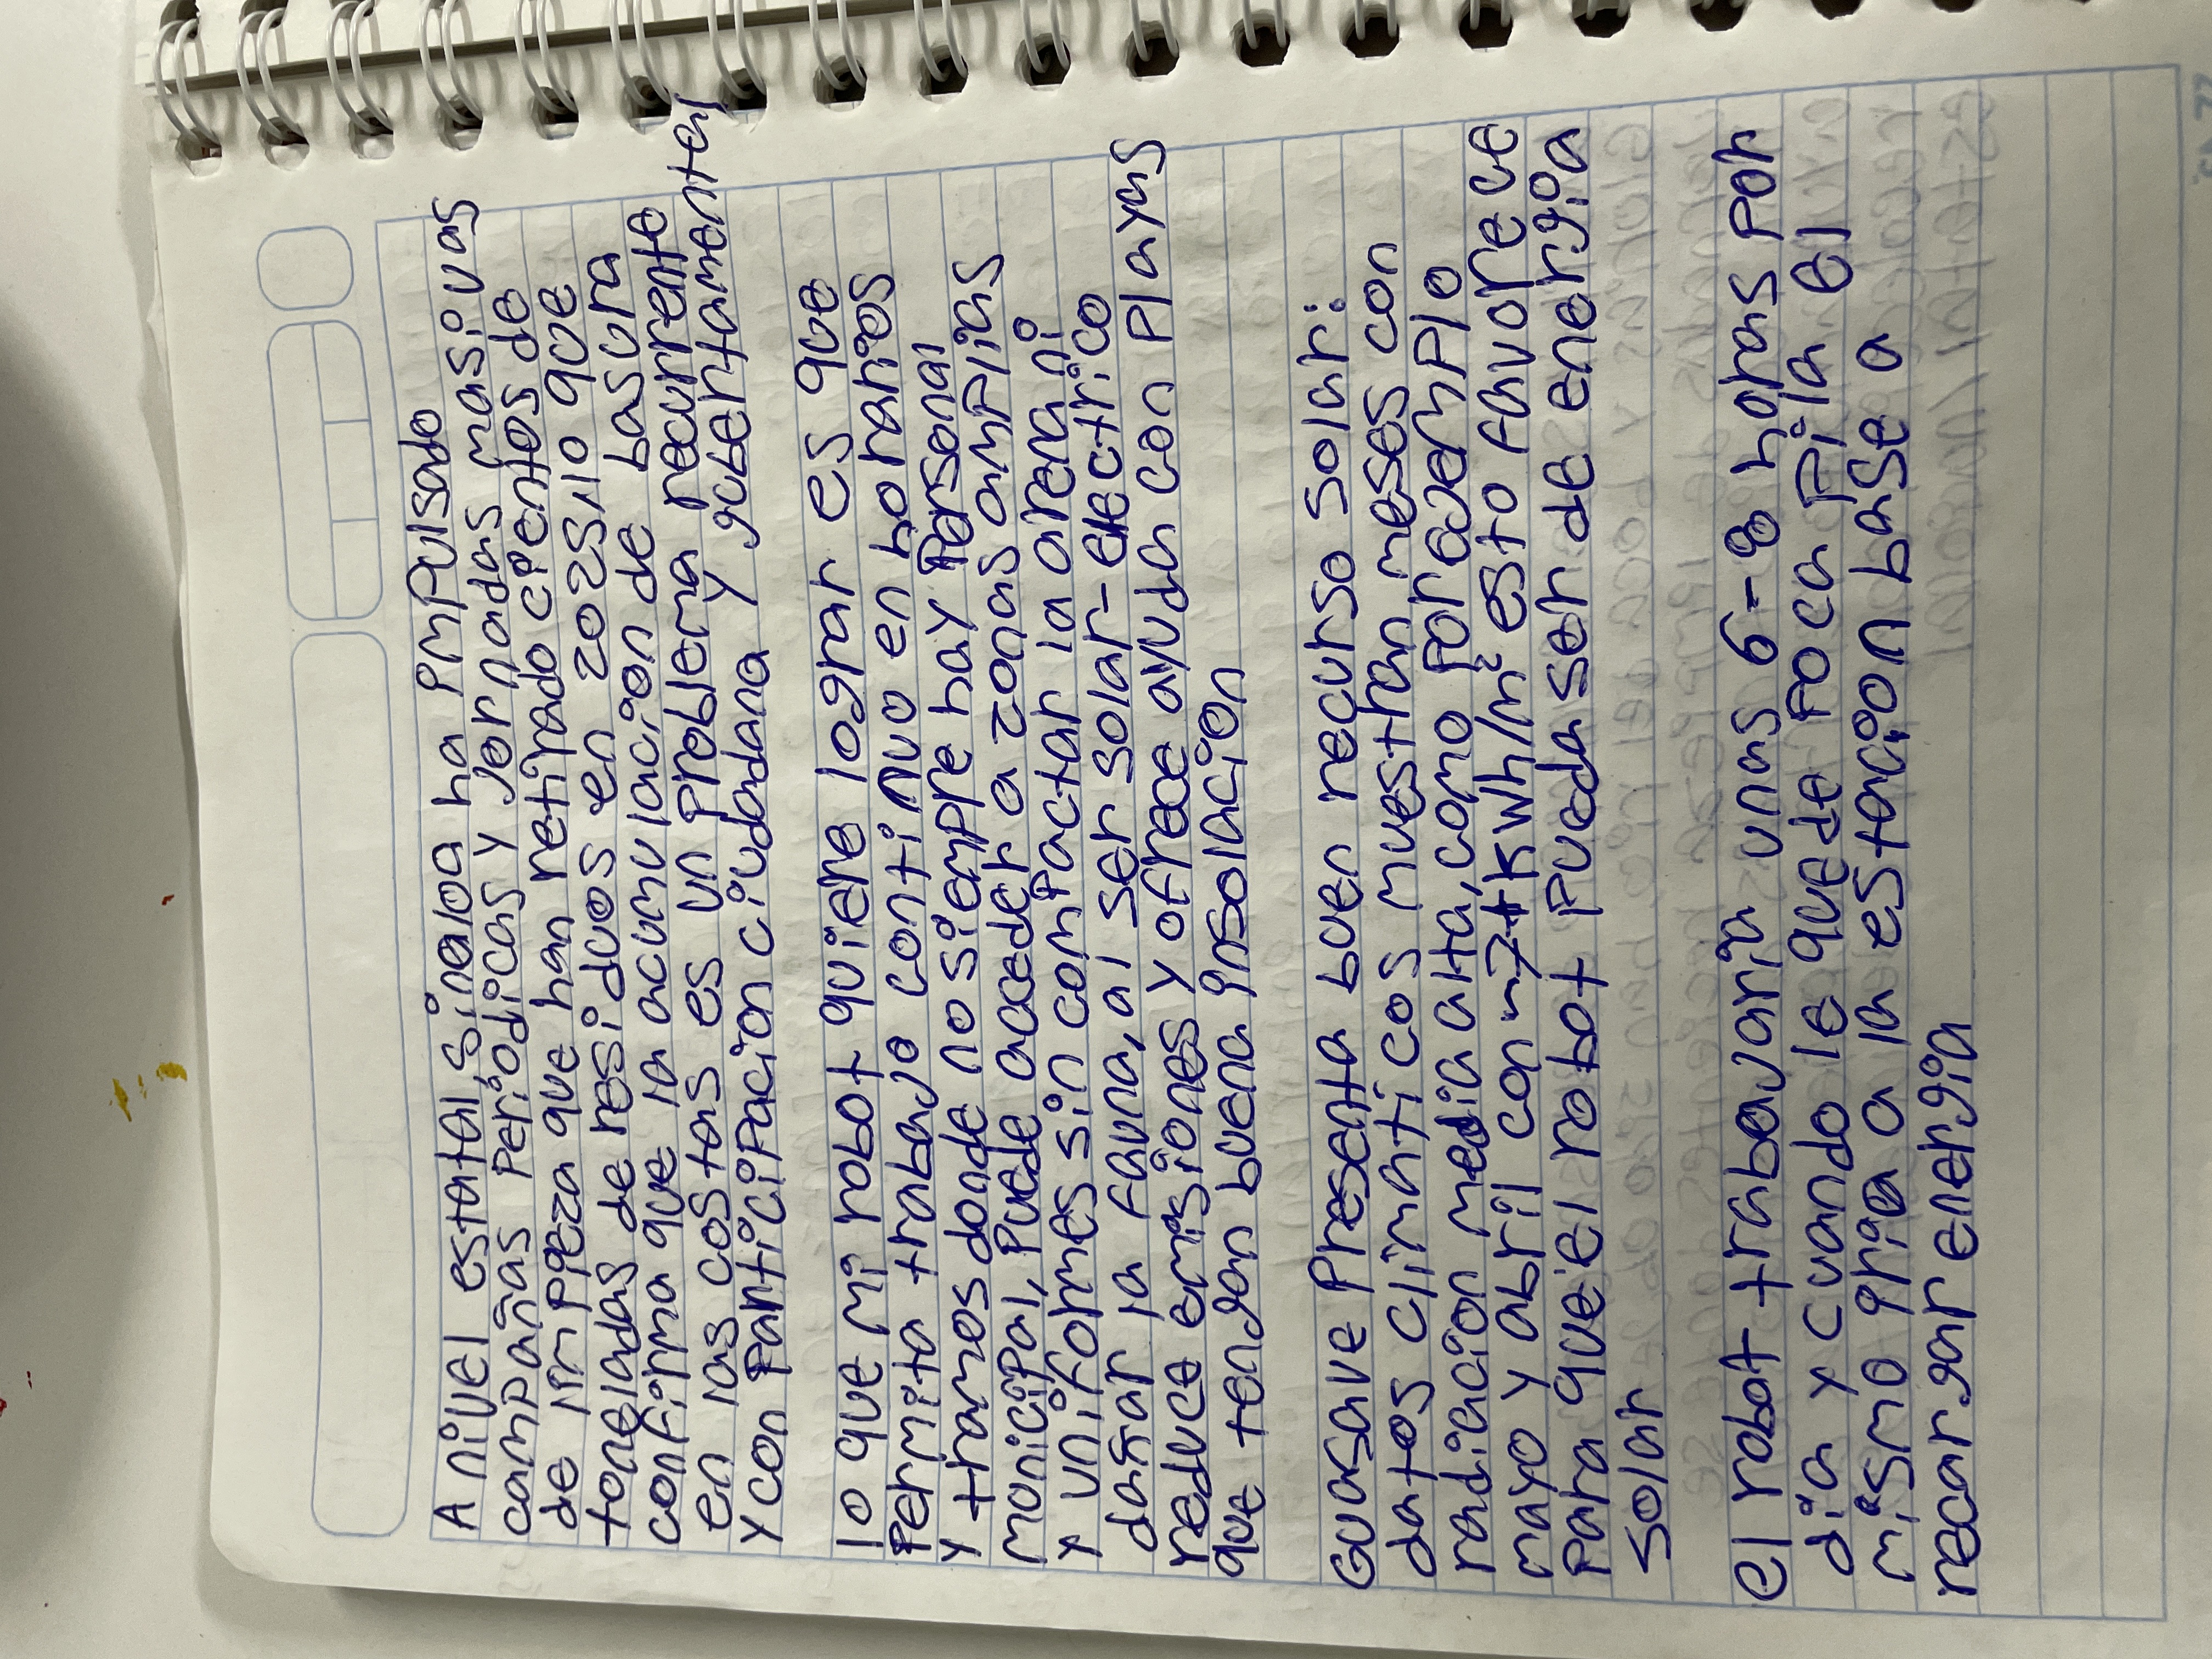 A nivel estatal, sinaloa ha impulsado
campañas periodicas y jornadas masivas
de limpieza que han retirado cientos de
toneladas de residuos en 2025, lo que
confirma que la acumulación de basura
en las costas es un problema recurrente
y con participacion ciudadana y gubertamental
lo que mi robot quiere lograr es que
permita trabajo continuo en horarios
y tramos donde no siempre hay personal
monicipal, puede acceder a zonas amplias
y uniformes sin compactar la arena ni
dañar la fauna, al ser solar-electrico
reduce emisiones y ofrece ayuda con playas
que tengan buena insolación
Guasave presenta buen recurso solar:
datos climaticos muestran meses con
radiacion media alta, como por ejemplo
mayo y abril con ~7+ kwh/m² esto favorece
para que el robot pueda ser de energia
solar
el robot trabajaría unas 6-8 horas por
dia y cuando le quede poca pila el
mismo iria a la estacion base a
recargar energia